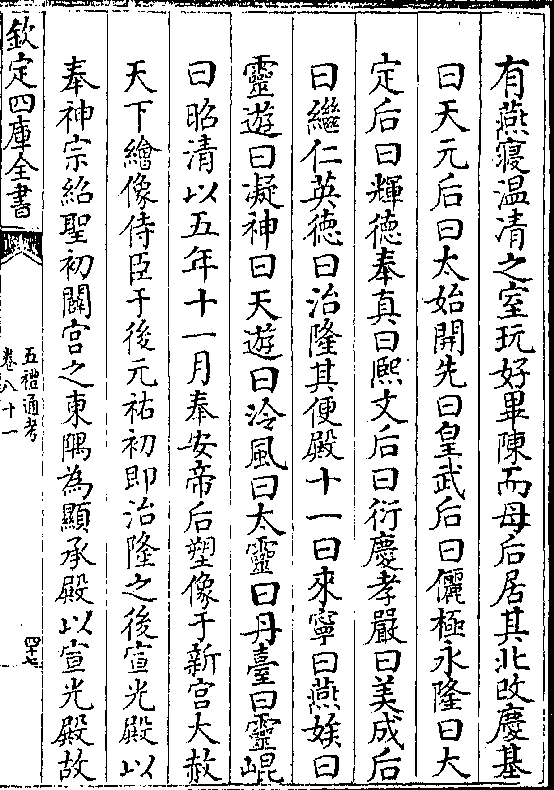 有燕寢温清之室玩好畢陳而母后居其北改慶基
曰天元后曰太始開先曰皇武后曰儷極永隆曰大
定后曰輝德奉真曰熙文后曰衍慶孝嚴曰美成后
曰繼仁英德曰治隆其便殿十一曰來寧曰燕娭曰
靈遊曰凝神曰天遊曰泠風曰太靈曰丹臺曰靈崐
曰昭清以五年十一月奉安帝后塑像于新宮大赦
天下繪像侍臣于後元祐初即治隆之後宣光殿以
奉神宗紹聖初闢宮之東隅為顯承殿以宣光殿故
欽定四庫全書
五禮通考
卷八十一
四十七